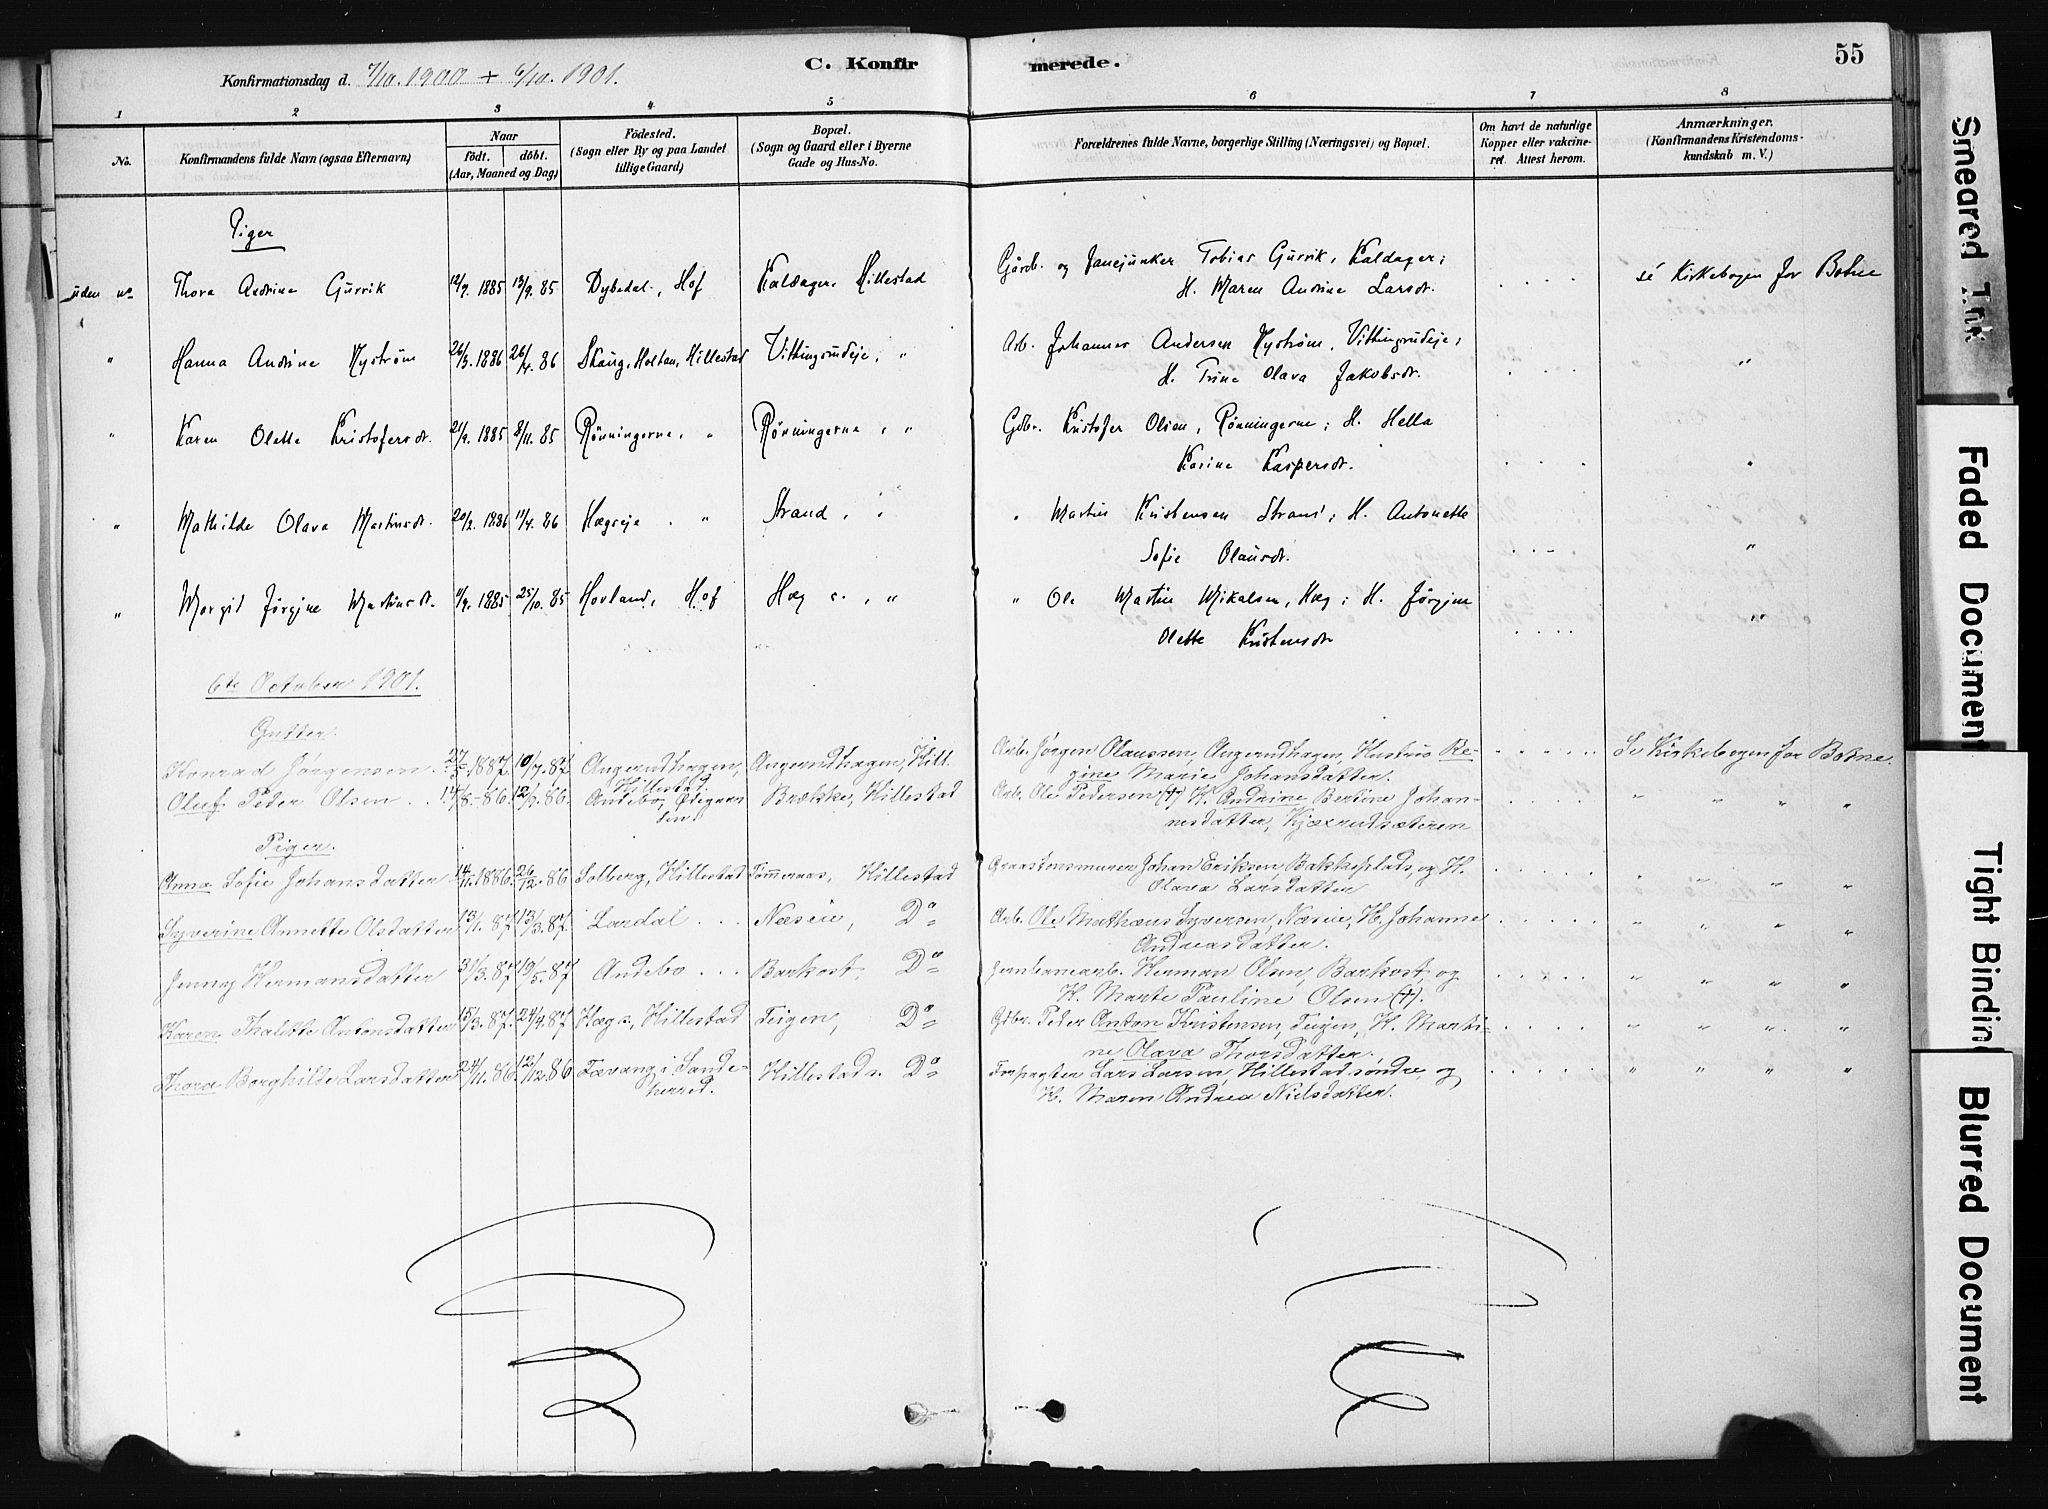 C. Konfirmerede.
55
Konfirmationsdag d. 7/10. 1900 + 6/10. 1901.
1 2 3 4 5 6 7 8
No.
Konfirmandens fulde Navn (ogsaa Efternavn)
Naar
födt. döbt.
(Aar, Maaned og Dag)
Födested.
(Sogn eller By og paa Landet
tillige Gaard)
Bopæl.
(Sogn og Gaard eller i Byerne
Gade og Hus-No.
Forældrenes fulde Navne, borgerlige Stilling (Næringsvei) og Bopæl.
Om havt de naturlige
Kopper eller vakcine-
ret. Attest herom.
Anmærkninger.
(Konfirmandens Kristendoms-
kundskab m. V.)
Piger
uden no Thora Andrine Gurrik 12/7. 1885 13/9. 85 Dybedal, Hof Kaldager, Hillestad Gårdb. og Tobias Gurrik, Kaldager; . . . . sé Kirkebogen for Botne
H. Maren Andrine Larsdt.
" Hanna Andrine Nyström 26/3. 1886 26/4. 86 Skaug, Holtan, Hillestad Vittingsrudeje, " Arb. Johannes Andersen Nyström, Vittingsrudeje;
H. Trine Olava Jakobsdt. . . . "
" Karen Olette Kristofersdt. 21/9. 1885 8/11. 85 Rönningerne, " Rönningerne, " Gdbr. Kristofer Olsen, Rönningerne; H. Hella
Karine Kaspersdt. . . . "
" Mathilde Olava Martinsdt. 20/2. 1886 11/4. 86 Hægseje " Strand, " " Martin Kristensen Strand; H. Antonette
Sofie Olausdt. . . . "
" Margit Jørgine Martinsdt. 11/9. 1885 25/10. 85 Hovland, Hof Hæg s., " " Ole Martin Mikalsen, Hæg; H. Jørgine
Olette Kristensdt. . . . . "
6te October 1901.
Gutter.
Konrad Jørgensen. 27/5. 1887. 10/7. 87 Angerudhagen, Hillestad Angerudhagen, Hill. Arb. Jørgen Olaussen, Angerudhagen, Hustru Re-
gine Marie Johansdatter. . . . . . Se Kirkebogen for Botne.
Oluf Peder Olsen . . 86. 12/9. 86. Andebo, Brække, Hillestad Arb. Ole Pedersen (†) H. Andrine Bertine Johan-
nesdatter, Kjærrudsæteren . . . . . " " " "
Piger.
Anna Sofie Johansdatter 14/11. 1886. 26/12. 86 Solberg, Hillestad Tømmeraas, Hillestad Graastensmurer Johan Eriksen, Bakkeplads, og H.
Olava Larsdatter . . . . . " " " "
Syverine Annette Olsdatter 13/1. 87. 13/3. 87. Lardal . . Næseie, Do Arb. Ole Mathæus Syversen, Næseie, H. Johanne
Andreasdatter. . . . . . " " " "
Jenny Hermansdatter 31/3. 87. 19/5. 87 Andebo . . . Barkost, Do Jernbanearb. Herman Olsen, Barkost, og
H. Marte Pauline Olsen (†). . . . . . " " " "
Karen Thalette Antonsdatter 15/3. 87. 24/4. 87 Hæg s., Hillestad Teigen, Do Gdbr. Peder Anton Kristensen, Teigen, H. Marti-
ne Olava Thorsdatter. . . . . . " " " "
Thora Borghilde Larsdatter 24/11. 86. 12/12. 86 Fævang i Sande-
herred. Hillestad s. Do Forpagter Lars Larsen, Hillestad søndre, og
H. Maren Andrea Nielsdatter. . . . . . " " " "
Smeared Ink
Faded Document
Tight Bindin
Blurred Document